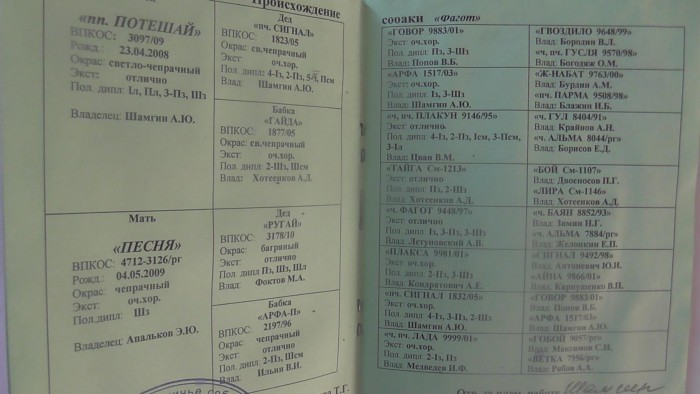 Происхождение
«пп. ПОТЕШАЙ»
ВПКОС: 3097/09
Рожд.: 23.04.2008
Окрас: светло-чепрачный
Экст: отлично
Пол. дипл: 1л, Пл, 3-Пз, Шз
Владелец: Шамгин А.Ю.
Дед
«пч. СИГНАЛ»
ВПКОС: 1823/05
Окрас: св.чепрачный
Экст: оч.хор.
Влад: Шамгин А.Ю.
Бабка
«ГАЙДА»
ВПКОС: 1877/05
Окрас: св.чепрачный
Экст: оч.хор.
Пол. дипл: 2-Шз, Шсм
Влад: Хотеенков А.Д.
Мать
«ПЕСНЯ»
ВПКОС: 4712-3126/рг
Рожд.: 04.05.2009
Окрас: чепрачный
Экст: оч.хор.
Пол.дипл: Шз
Владелец: Апальков Э.Ю.
Дед
«РУГАЙ»
ВПКОС: 3178/10
Окрас: багряный
Экст: отлично
Пол. дипл: Пз, Шз, Шл
Влад: Фоктов М.А.
Бабка
«АРФА-П»
ВПКОС: 2197/96
Окрас: чепрачный
Экст: отлично
Пол. дипл: 2-Пз, Шсм
Влад: Ильин В.И.
Т.Г.
собаки «Фагот»
«ГОВОР 9883/01»
Экст: оч.хор.
Пол. дипл: Пз, 3-Шз
Влад: Попов В.Б.
«АРФА 1517/03»
Экст: оч.хор.
Пол. дипл: 1з, 3-Шз
Влад: Шамгин А.Ю.
«ч. пч. ПЛАКУН 9146/95»
Экст: отлично
Пол. дипл: 4-1з, 2-Пз, 1см, 3-Псм,
3-1л
Влад: Цван В.М.
«ТАЙГА См-1213»
Экст: отлично
Пол. дипл: Пз, 2-Шз
Влад: Хотеенков А.Д.
«ч. ФАГОТ 9448/97»
Экст: отлично
Пол. дипл: 1з, 3-Пз, 3-Шз
Влад: Летуновский А.В.
«ПЛАКСА 9981/01»
Экст: оч.хор.
Пол. дипл: 2-Пз, 3-Шз
Влад: Кондратович А.Е.
«пч. СИГНАЛ 1832/05»
Экст: оч.хор.
Пол. дипл: 4-1з, 3-Пз, 2-Шз
Влад: Шамгин А.Ю.
«ч. пч. ЛАДА 9999/01»
Экст: оч.хор.
Пол. дипл: 2-1з, Пз
Влад: Медведев И.Ф.
«ГВОЗДИЛО 9648/99»
Влад: Бородин В.Л.
«ч. пч. ГУСЛЯ 9570/98»
Влад: Богодяж О.М.
«Ж-НАБАТ 9763/00»
Влад: Бурдин А.М.
«пч. ПАРМА 9508/98»
Влад: Блажин И.Б.
«ч. ГУЛ 8404/91»
Влад: Крайнов А.Н.
«ч. АЛЬМА 8044/рг»
Влад: Борисов Е.Д.
«БОЙ См-1107»
Влад: Двоеносов П.Г.
«ЛИРА См-1146»
Влад: Хотеенков А.Д.
«ч. БАЯН 8852/93»
Влад: Зимин Н.Г.
«ч. АЛЬМА 7884/рг»
Влад: Желонкин Е.П.
«СИГНАЛ 9492/98»
Влад: Антоневич Ю.И.
«АЙНА 9866/01»
Влад: Карпушенко В.П.
«ГОВОР 9883/01»
Влад: Попов В.Б.
«АРФА 1517/03»
Влад: Шамгин А.Ю.
«ГОБОЙ 9057/рг»
Влад: Максимов С.И.
«ВЕТКА 7956/рг»
Влад: Рябов А.А.